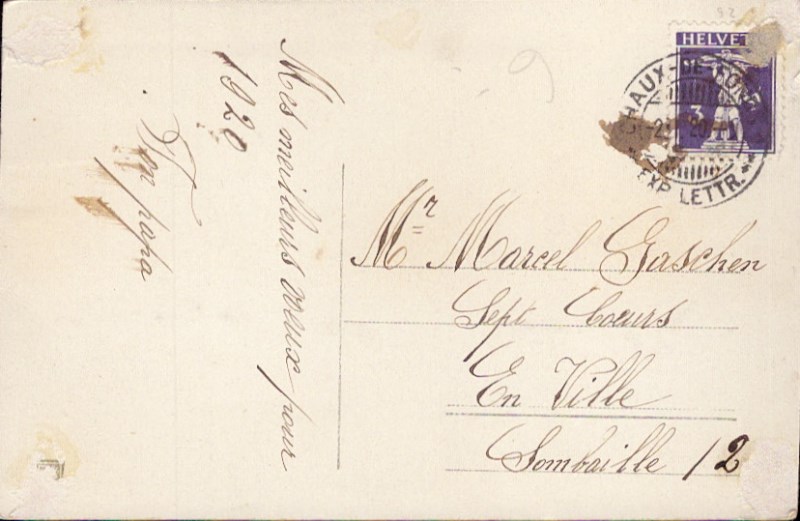 Mes meilleurs vœux pour
1920
Ton papa
HELVE
3
CHAUX-DE-FON
20
EXP. LETTR.
Mr Marcel Gaschen
Sept Coeurs
En Ville
Sombaille 12